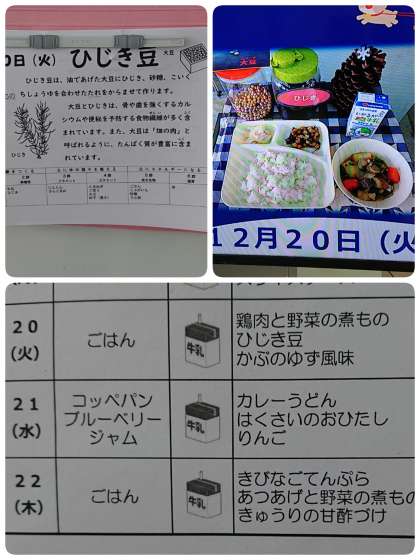 20日(火) ひじき豆
大豆
ひじき豆は、油であげた大豆にひじき、砂糖、こいく
ちしょうゆを合わせたたれをからませて作ります。
大豆とひじきは、骨や歯を強くするカル
シウムや便秘を予防する食物繊維が多く含
まれています。また、大豆は「畑の肉」と
呼ばれるように、たんぱく質が豊富に含ま
れています。
ひじき
大豆
ひじき
12月20日(火
20
(火)
ごはん
牛乳
鶏肉と野菜の煮もの
ひじき豆
かぶのゆず風味
21
(水)
コッペパン
ブルーベリー
ジャム
牛乳
カレーうどん
はくさいのおひたし
りんご
22
(木)
ごはん
牛乳
きびなごてんぷら
あつあげと野菜の煮もの
きゅうりの甘酢づけ